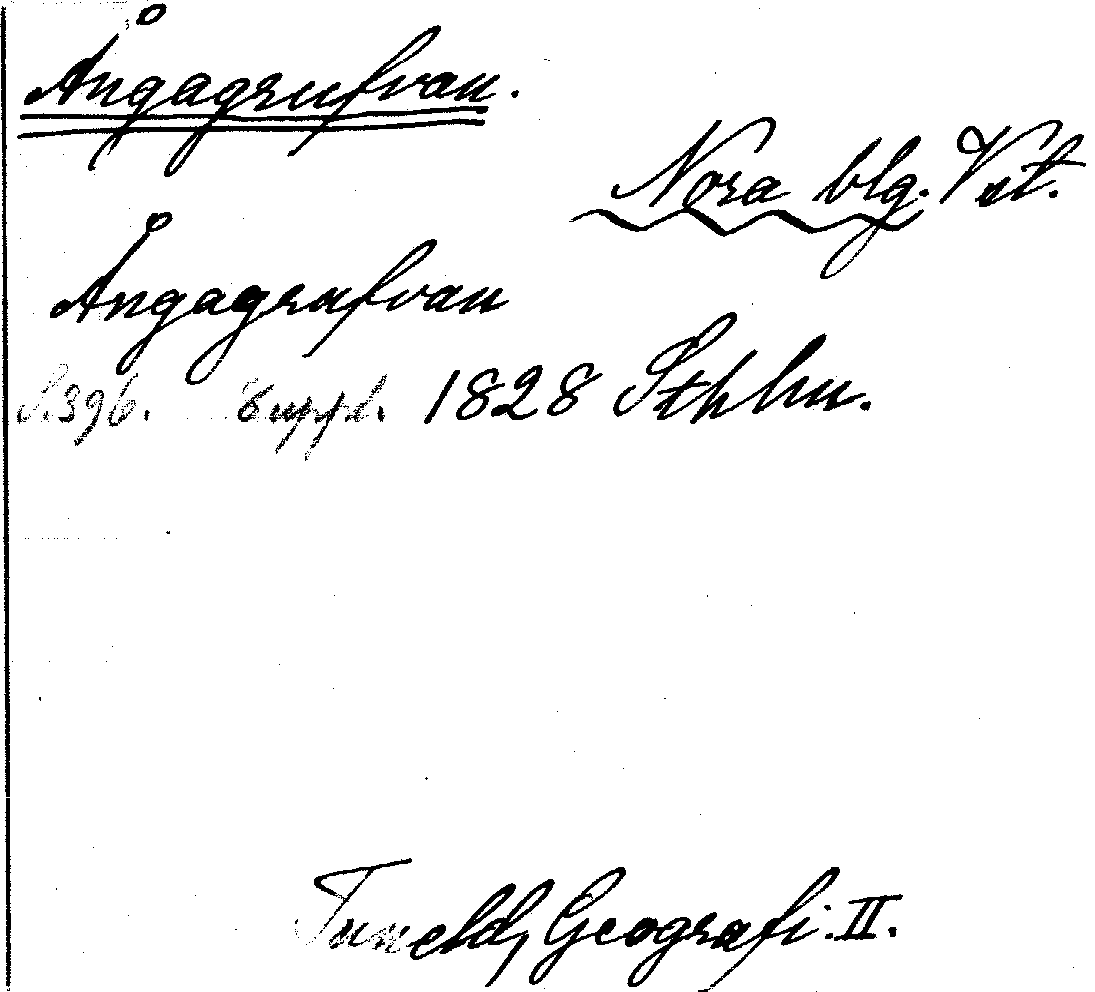 Ångagrufvan.
Nora blg. Vst.
Ångagrufvan
S. 396. 8 uppl. 1828 Sthlm.
Tuneld, Geografi. II.